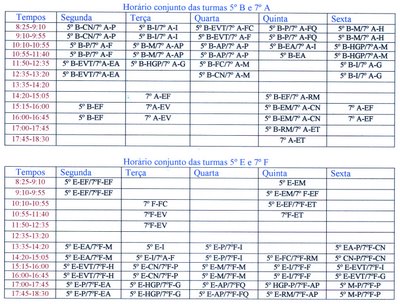 Horário conjunto das turmas 5º B e 7º A
Tempos Segunda Terça Quarta Quinta Sexta
8:25-9:10 5º B-CN/7º A-P 5º B-I/7º A-I 5º B-EVT/7º A-FC 5º B-P/7º A-FQ 5º B-M/7º A-H
9:10-9:55 5º B-CN/7º A-P 5º B-I/7º A-I 5º B-EVT/7º A-F 5º B-P/7º A-FQ 5º B-M/7º A-H
10:10-10:55 5º B-P/7º A-F 5º B-M/7º A-AP 5º B-AP/7º A-P 5º B-EA/7º A-I 5º B-HGP/7ºA-M
10:55-11:40 5º B-P/7º A-F 5º B-M/7º A-AP 5º B-AP/7º A-P 5º B-EA 5º B-HGP/7ºA-M
11:50-12:35 5º B-EVT/7ºA-EA 5º B-HGP/7º A-G 5º B-FC/7º A-M 5º B-I/7º A-G
12:35-13:20 5º B-EVT/7ºA-EA 5º B-CN/7º A-M 5º B-I/7º A-G
13:35-14:20
14:20-15:05 7º A-EF 5º B-EF/7º A-RM
15:15-16:00 5º B-EF 7º A-EV 5º B-EM/7º A-CN 7º A-EF
16:00-16:45 5º B-EF 7º A-EV 5º B-EM/7º A-CN 7º A-EF
17:00-17:45 5º B-RM/7º A-ET
17:45-18:30 7º A-ET
Horário conjunto das turmas 5º E e 7º F
Tempos Segunda Terça Quarta Quinta Sexta
8:25-9:10 5º E-EF/7ºF-EF 5º E-EM
9:10-9:55 5º E-EF/7ºF-EF 5º E-EM/7º F-EF
10:10-10:55 7º F-FC 5º E-EF/7ºF-ET
10:55-11:40 7ºF-EV 7ºF-ET
11:50-12:35 7ºF-EV
12:35-13:20
13:35-14:20 5º E-EA/7ºF-M 5º E-I 5º E-P/7ºF-I EA-P/7ºF-CN
14:20-15:05 5º E-EA/7ºF-M 5º E-I/7º A-F 5º E-P/7ºF-I 5º E-FC/7ºF-RM CN-P/7ºF-CN
15:15-16:00 5º E-EVT/7ºF-H 5º E-CN/7ºF-P 5º E-M/7ºF-M 5º E-I/7ºF-F 5º E-EVT/7ºF-G
16:00-16:45 5º E-EVT/7ºF-H 5º E-CN/7ºF-P 5º E-M/7ºF-M 5º E-I/7ºF-F 5º E-EVT/7ºF-G
17:00-17:45 5º E-P/7ºF-EA 5º E-HGP/7ºF-G 5º E-AP/7ºF-FQ HGP-P/7ºF-AP 5º M-P/7ºF-P
17:45-18:30 5º E-P/7ºF-EA 5º E-HGP/7ºF-G 5º E-AP/7ºF-FQ 5º E-RM/7ºF-AP 5º M-P/7ºF-P